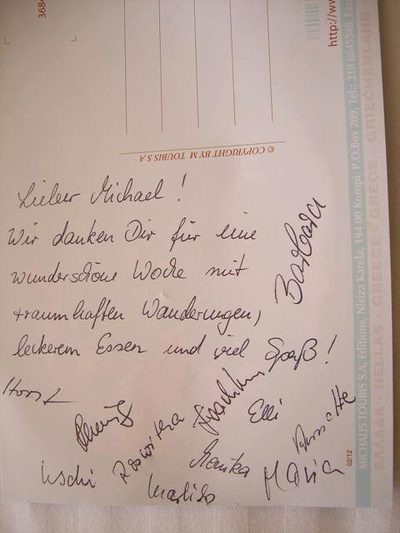 3684
http://www
© COPYRIGHT BY M TOUBIS S A
MICHALIS TOUBIS S.A. Editions, Nisiza Karela, 194 00 Koropi, P.O.Box 209, Tel.: 210 6645548,
ΕΛΛΑΔΑ - HELLAS - GREECE - GRECE - GRIECHENLAND
02/12
Lieber Michael !
Wir danken Dir für eine
wunderschöne Woche mit
traumhaften Wanderungen,
leckerem Essen und viel Spaß!
Barbara
Horst
Elli
Annette
Uschi
Roswitha
Marlies
Monika
Maria